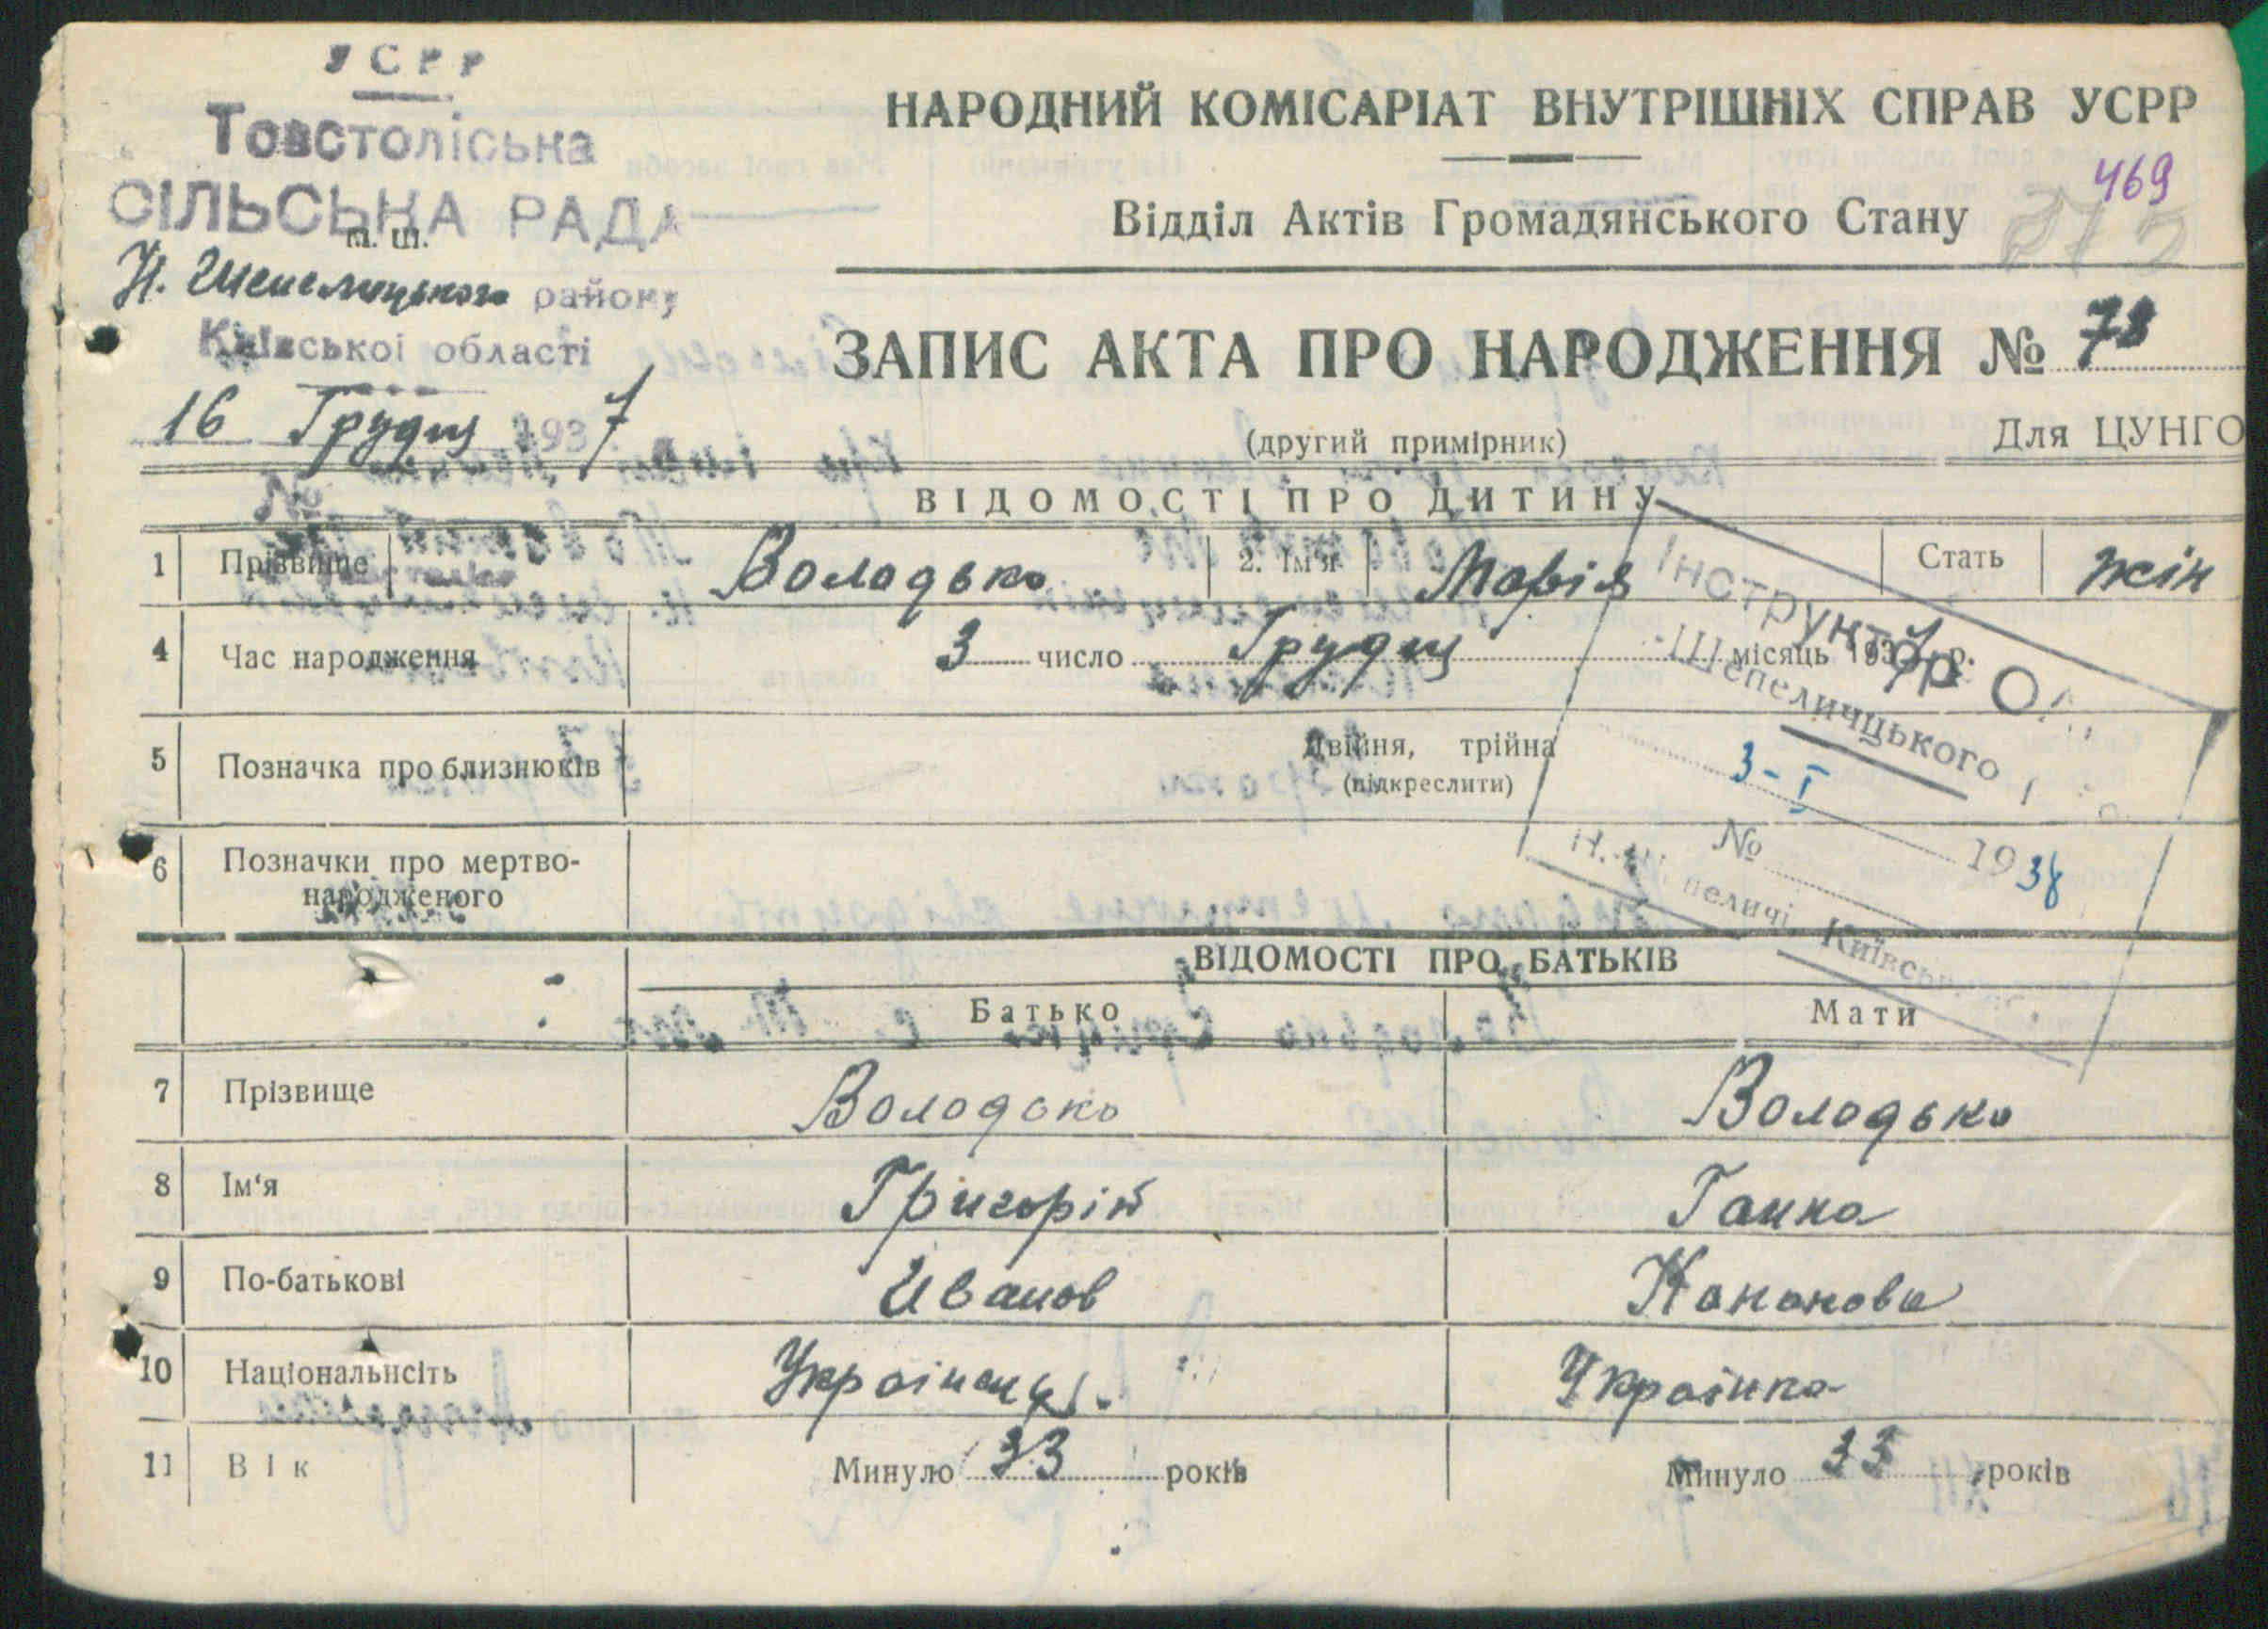 УСРР
Товстоліська
СІЛЬСЬКА РАДА
м. ш.
Н. Шепелицького району
Київської області
16 Грудня 1937
№
НАРОДНИЙ КОМІСАРІАТ ВНУТРІШНІХ СПРАВ УСРР
469
Відділ Актів Громадянського Стану
ЗАПИС АКТА ПРО НАРОДЖЕННЯ № 78
(другий примірник)
Для ЦУНГО
ВІДОМОСТІ ПРО ДИТИНУ
1 Прізвище Володько 2. Ім'я Марія Стать жін
4 Час народження 3 число Грудня місяць 1937 р.
5 Позначка про близнюків Двійня, трійна
(підкреслити)
6 Позначки про мертво-
народженого
Інструктор
Шепеличцького
3-I 1938
№
Н. Шепеличі, Київськ
ВІДОМОСТІ ПРО БАТЬКІВ
Батько Мати
7 Прізвище Володько Володько
8 Ім'я Григорій Ганна
9 По-батькові Иванов Кононова
10 Національнсіть Українець Українка
11 Вік Минуло 33 років Минуло 33 років